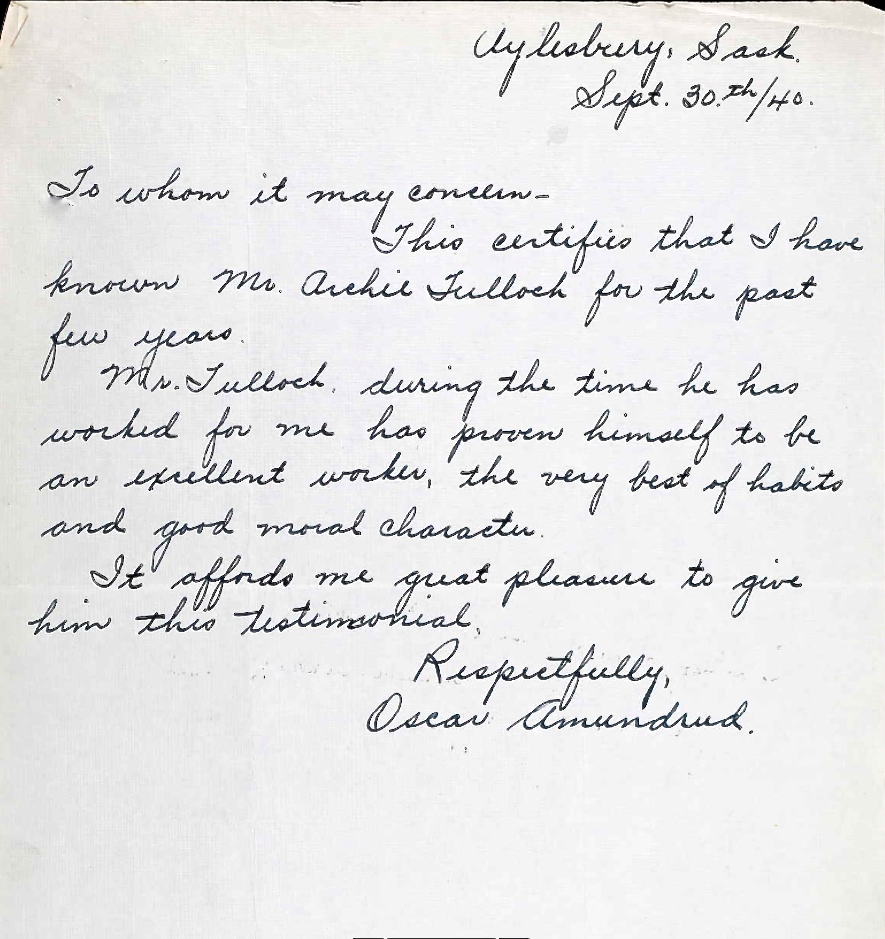 Aylesbury, Sask.
Sept. 30.th/40.
To whom it may concern-
This certifies that I have
known Mr. Archie Tulloch for the past
few years.
Mr. Tulloch, during the time he has
worked for me has proven himself to be
an excellent worker, the very best of habits
and good moral character.
It affords me great pleasure to give
him this testimonial.
Respectfully,
Oscar Amundrud.